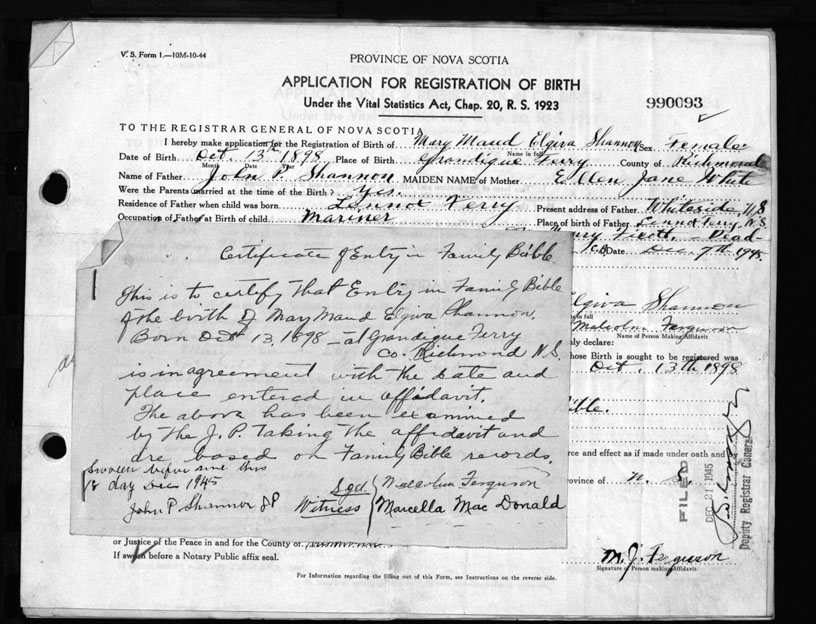 V. S. Form 1.—10M-10-44
PROVINCE OF NOVA SCOTIA
APPLICATION FOR REGISTRATION OF BIRTH
Under the Vital Statistics Act, Chap. 20, R. S. 1923
990093
TO THE REGISTRAR GENERAL OF NOVA SCOTIA
I hereby make application for the Registration of Birth of Mary Maud Elgiva Shannon Sex Female
Name in full
Date of Birth Oct. 13th 1898 Place of Birth Grandique Ferry County of Richmond
Month Date Year
Name of Father John P. Shannon MAIDEN NAME of Mother Ellen Jane White
Were the Parents married at the time of the Birth? Yes.
Residence of Father when child was born Lennox Ferry Present address of Father Whiteside, N.S
Occupation of Father at Birth of child Mariner Place of birth of Father Lennox Ferry N.S.
Dead
Date Dec. 7th 1945.
Certificate of Entry in Family Bible
This is to certify that Entry in Family Bible
of the birth of Mary Maud Elgiva Shannon,
Born Oct 13, 1898 — at Grandique Ferry
Co. Richmond N.S.
is in agreement with the date and
place entered in affidavit.
The above has been examined
by the J.P. taking the affidavit and
are based on Family Bible records.
Sworn before me this
18 day Dec 1945
John P Shannon JP
Sgd.
Witness
Malcolm Ferguson
Marcella Mac Donald
Elgiva Shannon
in full
Malcolm Ferguson
Name of Person Making Affidavit
ly declare:
hose Birth is sought to be registered was
Oct. 13th 1898
ible.
rce and effect as if made under oath and
rovince of N. S.
FILED
DEC 21 1945
Deputy Registrar General
or Justice of the Peace in and for the County of
If sworn before a Notary Public affix seal.
M. J. Ferguson
Signature of Person making Affidavit
For Information regarding the filling out of this Form, see Instructions on the reverse side.